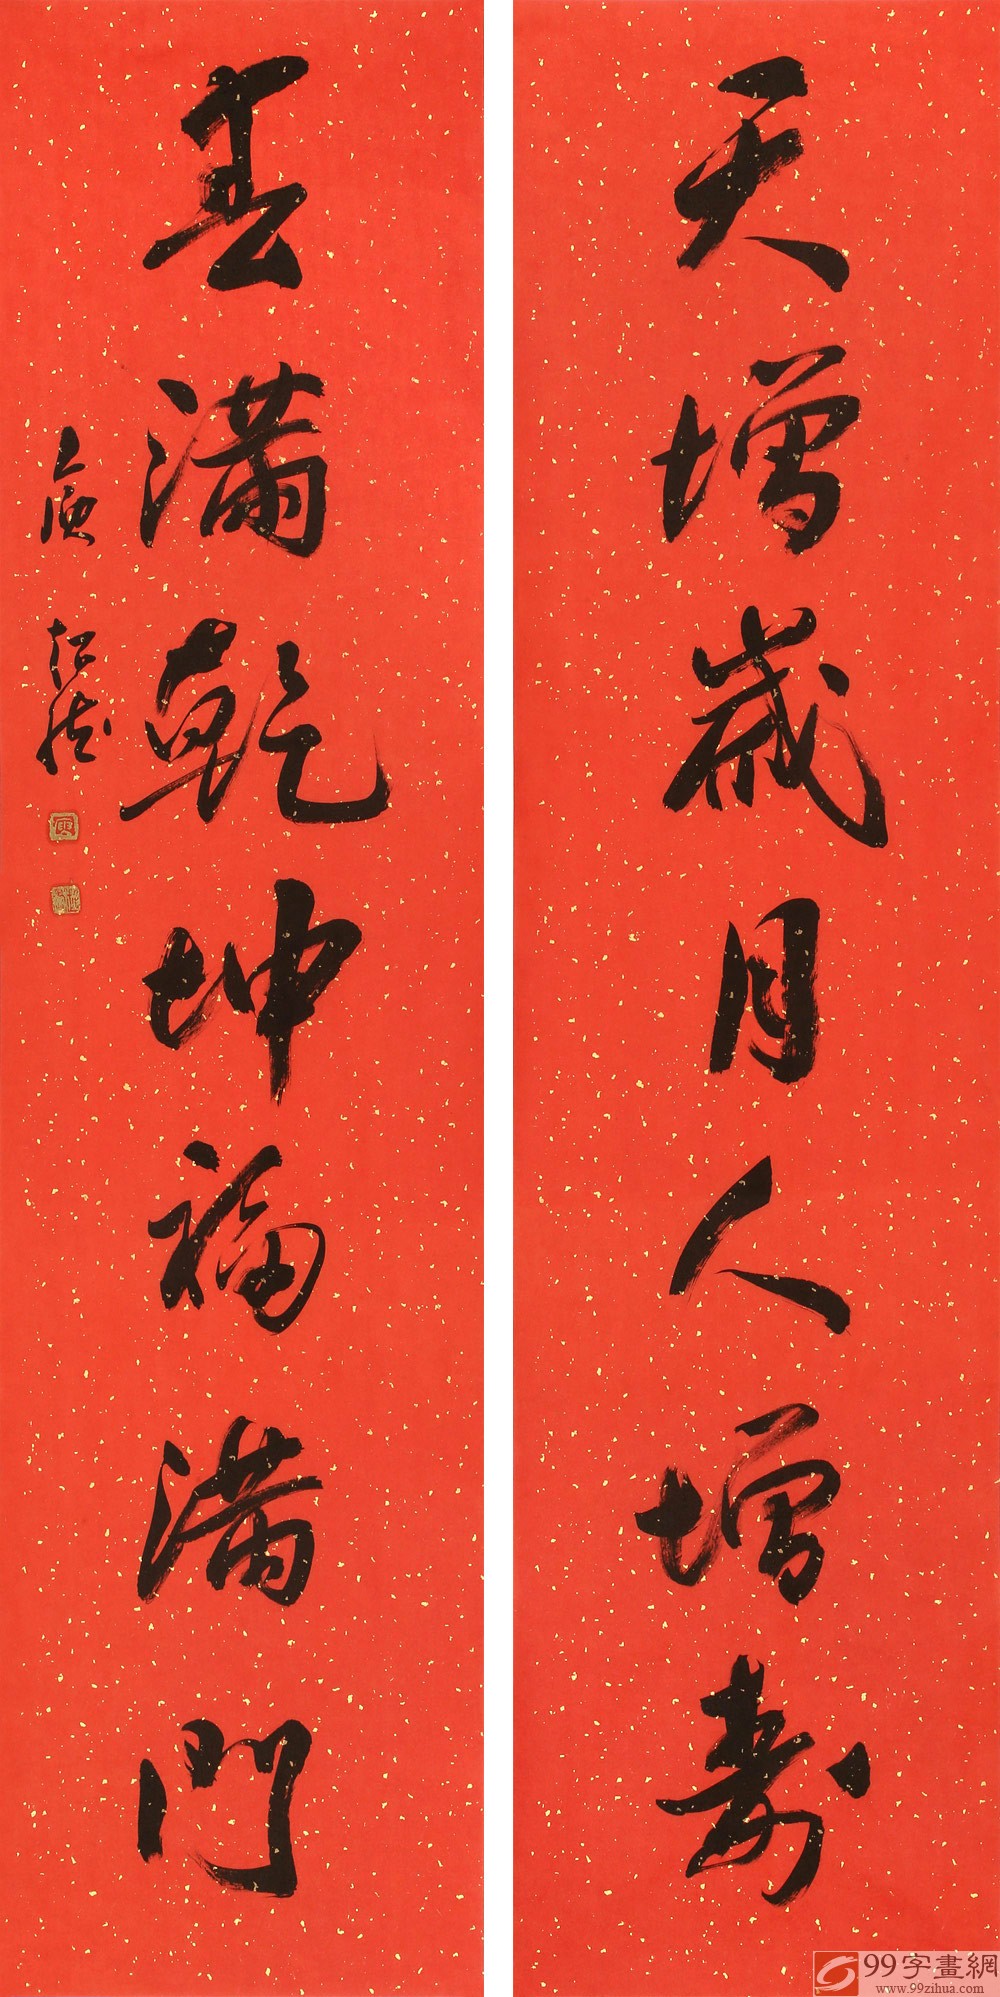 天增歲月人增壽
春滿乾坤福滿門
99字畫網
www.99zihua.com